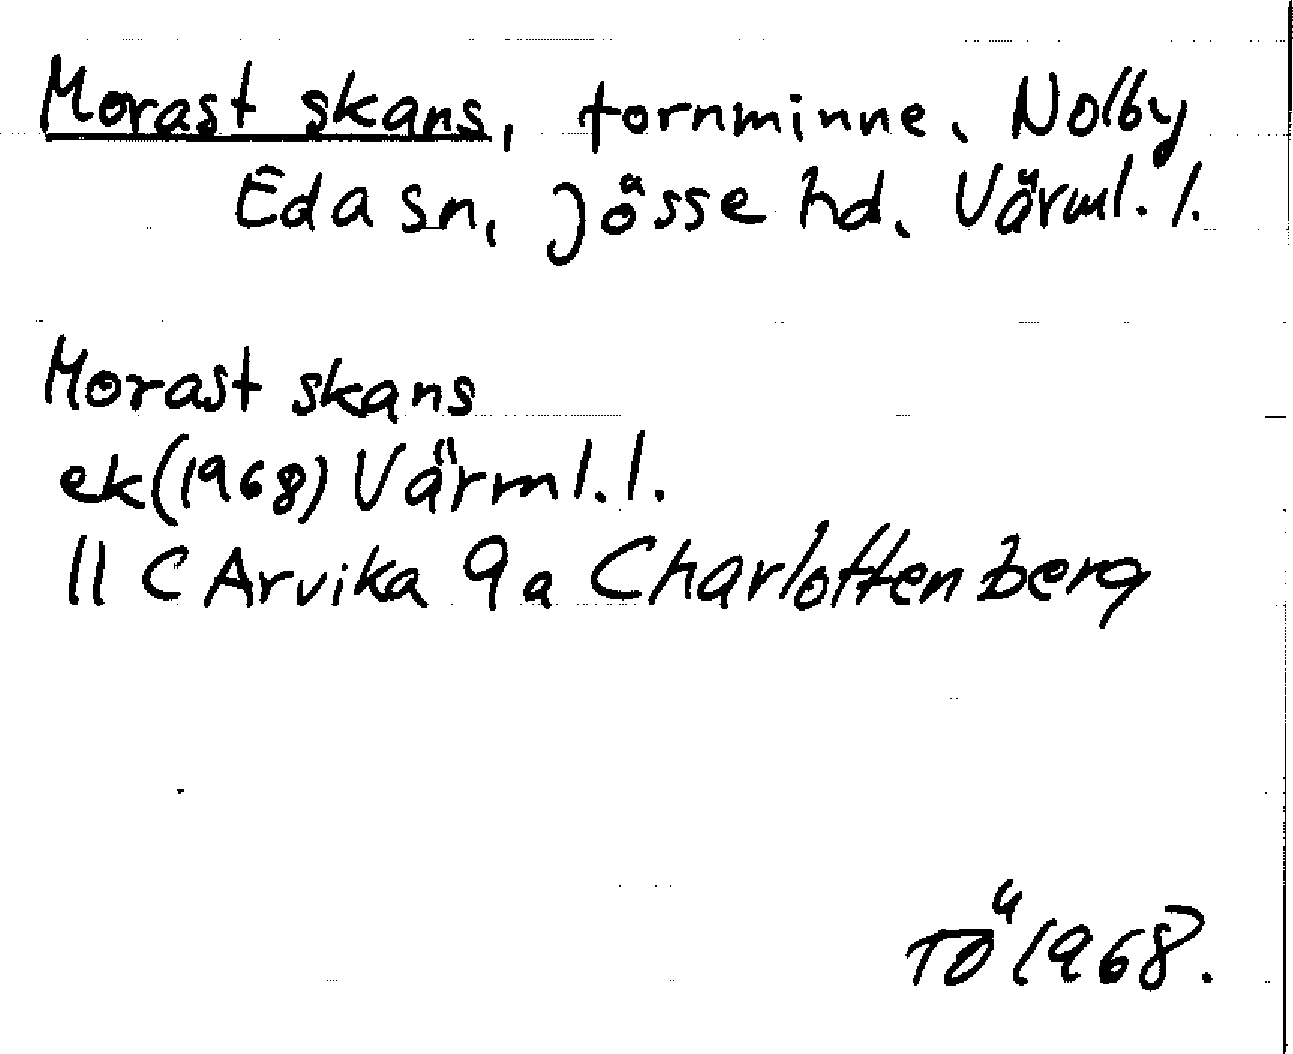 Morast skans, fornminne, Nolby
Eda sn, Jösse hd, Värml. l.
Morast skans
ek(1968) Värml. l.
11 C Arvika 9a Charlottenberg
TÖ 1968.